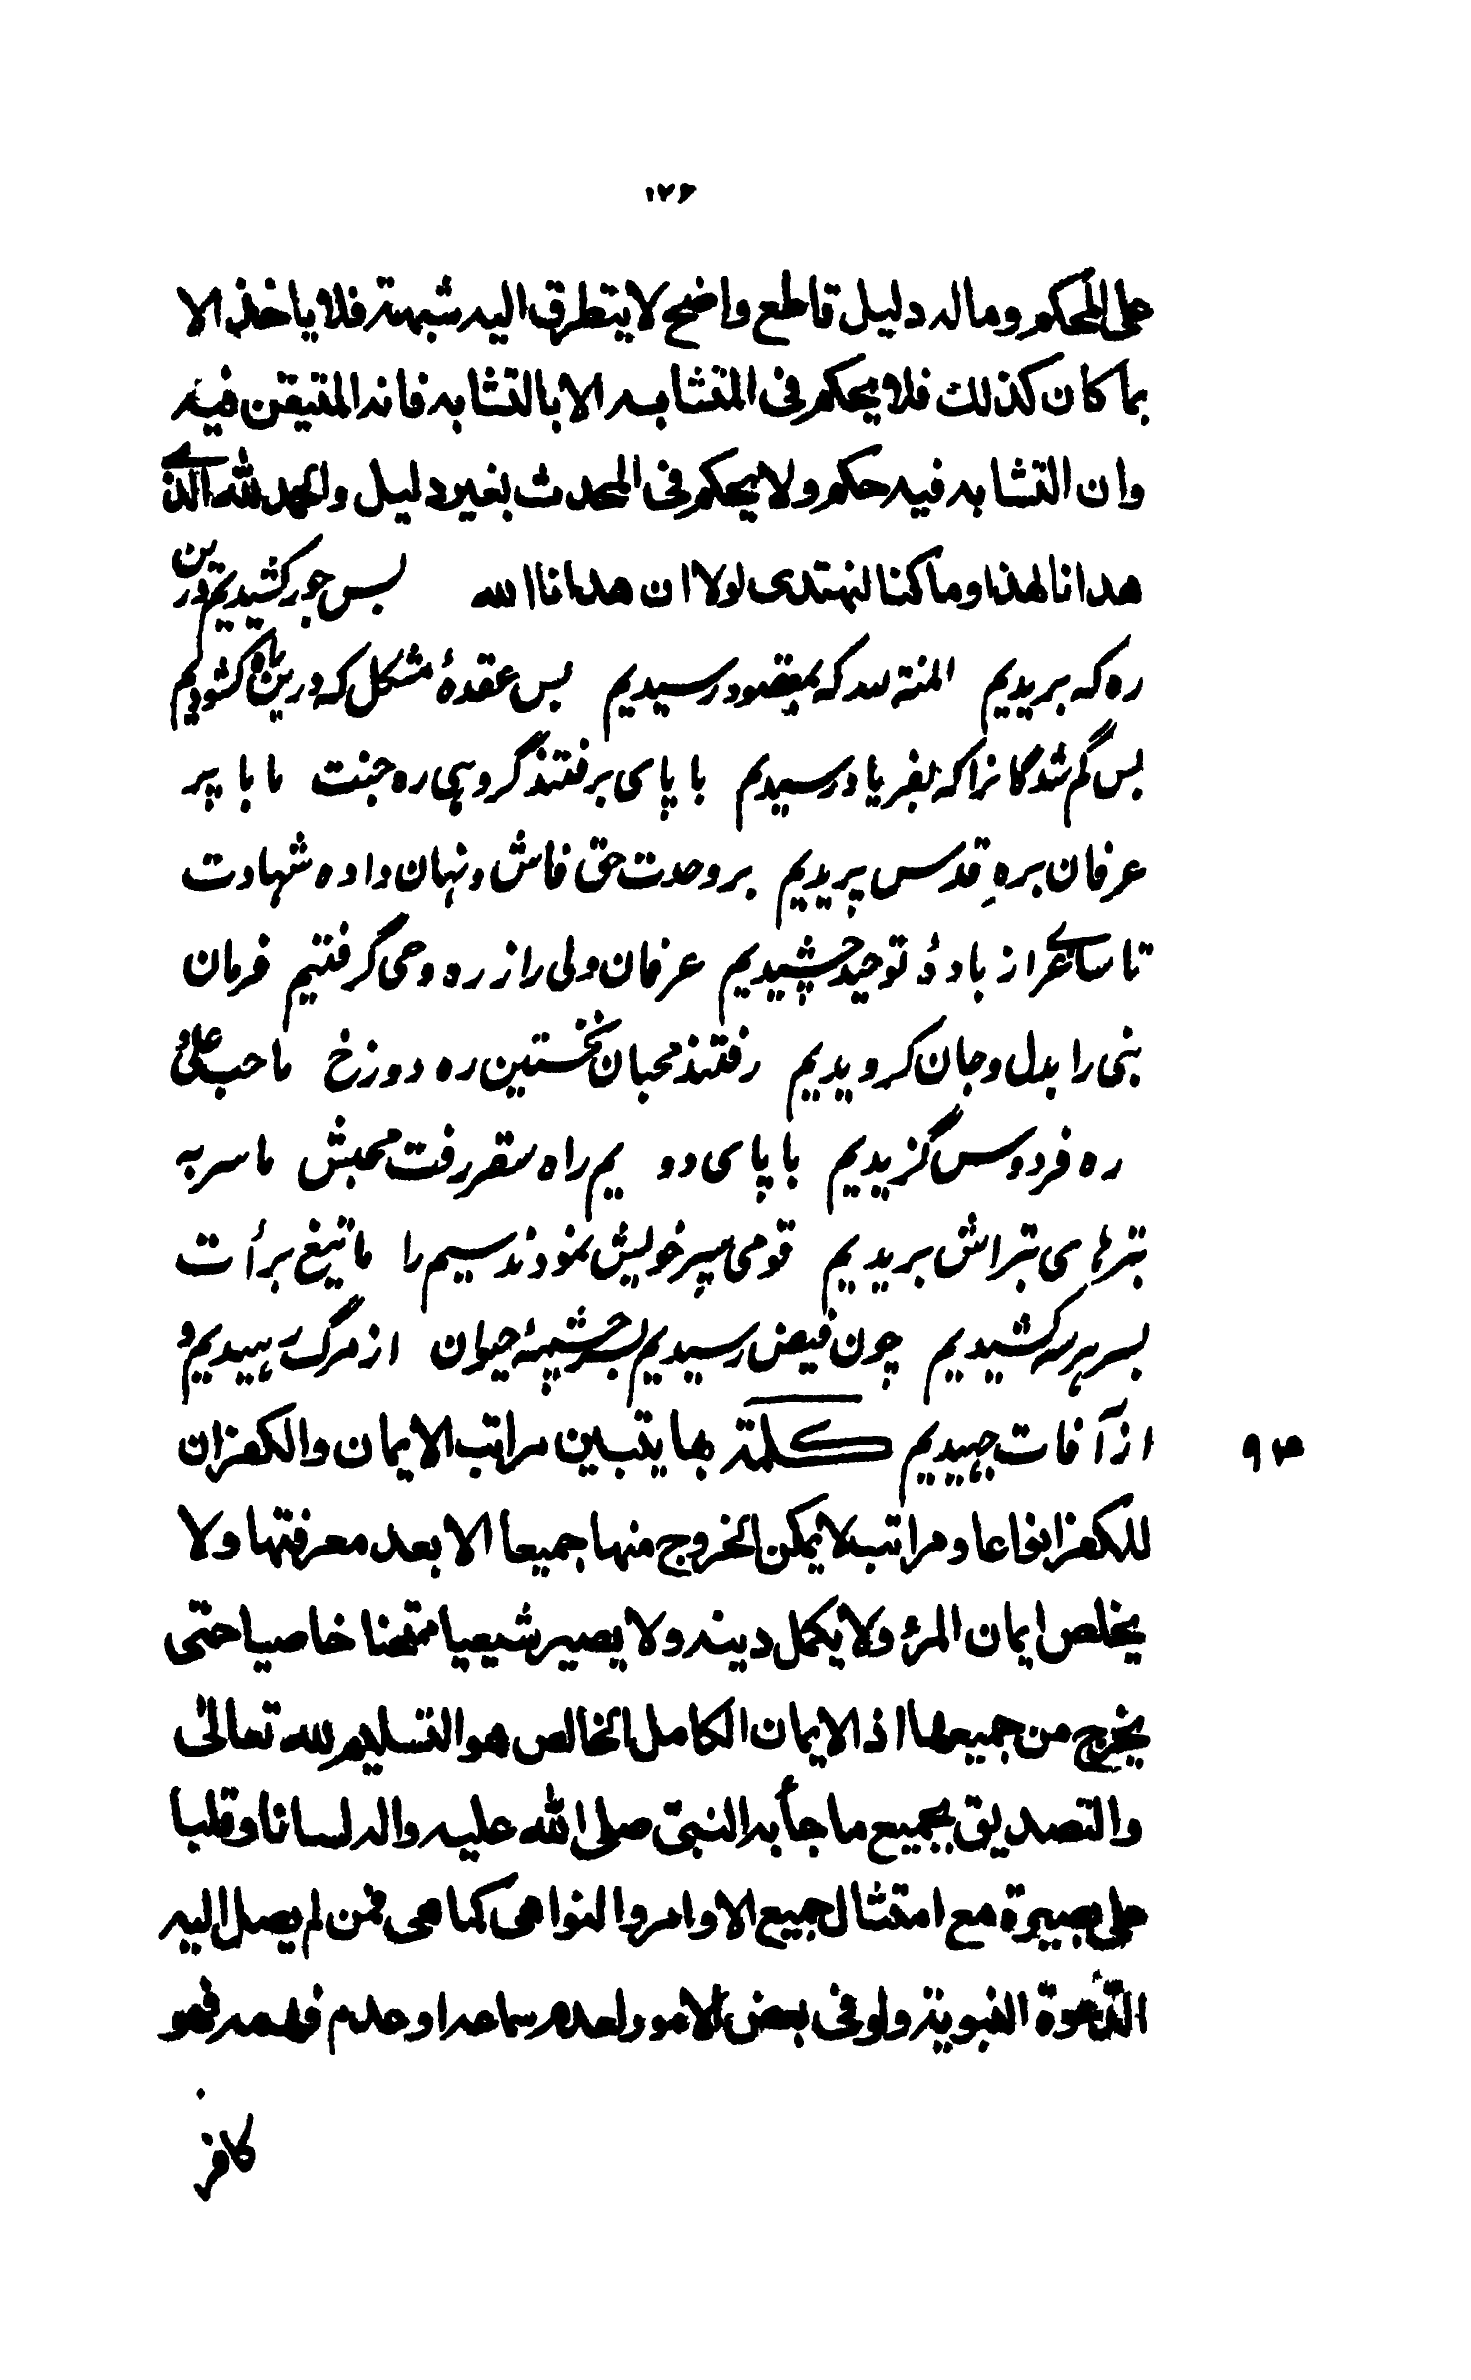 ۱۲۶
على المحكم وماله دليل قاطع واضح لا يتطرق اليه شبهة فلا ياخذ الا
بما كان كذلك فلا يحكم فى المتشابه الا بالتشابه فانه المتيقن فيه
وان التشابه فيه حكم ولا يحكم فى المحدث بغير دليل والحمد لله الذے
هدانا لهذا وما كنا لنهتدى لولا ان هدانا الله بس جور كشيديم درين
ره كه بريديم المنة لله كه بمقصود رسيديم بس عقدۀ مشكل كه درين راه كشوديم
بس گم شدگانرا كه بفرياد رسيديم با پاى برفتند گروہى ره جنت ما با پر
عرفان برهِ قدس پريديم بر وحدت حق فاش و نهان داده شهادت
تا ساغرے از بادۀ توحيد چشيديم عرفان ولى را ز ره وحى گرفتيم فرمان
نبى را بدل و جان گرويديم رفتند محبان نخستين ره دوزخ ما حب علىؑ و
ره فردوس گزيديم با پاى دويم راه سقر رفت محبش ما سر به
تبرهاى تبراش بريديم قومى سپر خويش نمودند سيم را ما تيغ برأت
بسر هر سه كشيديم چون فيض رسيديم بسرچشمۀ حيوان از مرگ رهيديم و
از آفات جهيديم كلمة بها يتبين مراتب الايمان والكفر ان
۹۴
للكفر انواعا ومراتب لا يمكن الخروج منها جميعا الا بعد معرفتها ولا
يخلص ايمان المرء ولا يكمل دينه ولا يصير شيعيا ممتحنا خاصيا حتى
يخرج من جميعها اذ الايمان الكامل الخالص هو التسليم لله تعالى
والتصديق بجميع ما جأ به النبىّ صلى الله عليه واله لسانا وقلبا
على بصيرة مع امتثال جميع الاوامر والنواهى كما هى فمن لم يصل اليه
الدّعوة النبوية ولو فى بعض الامور لعدم سماعه او عدم فهمه فهو
كافر